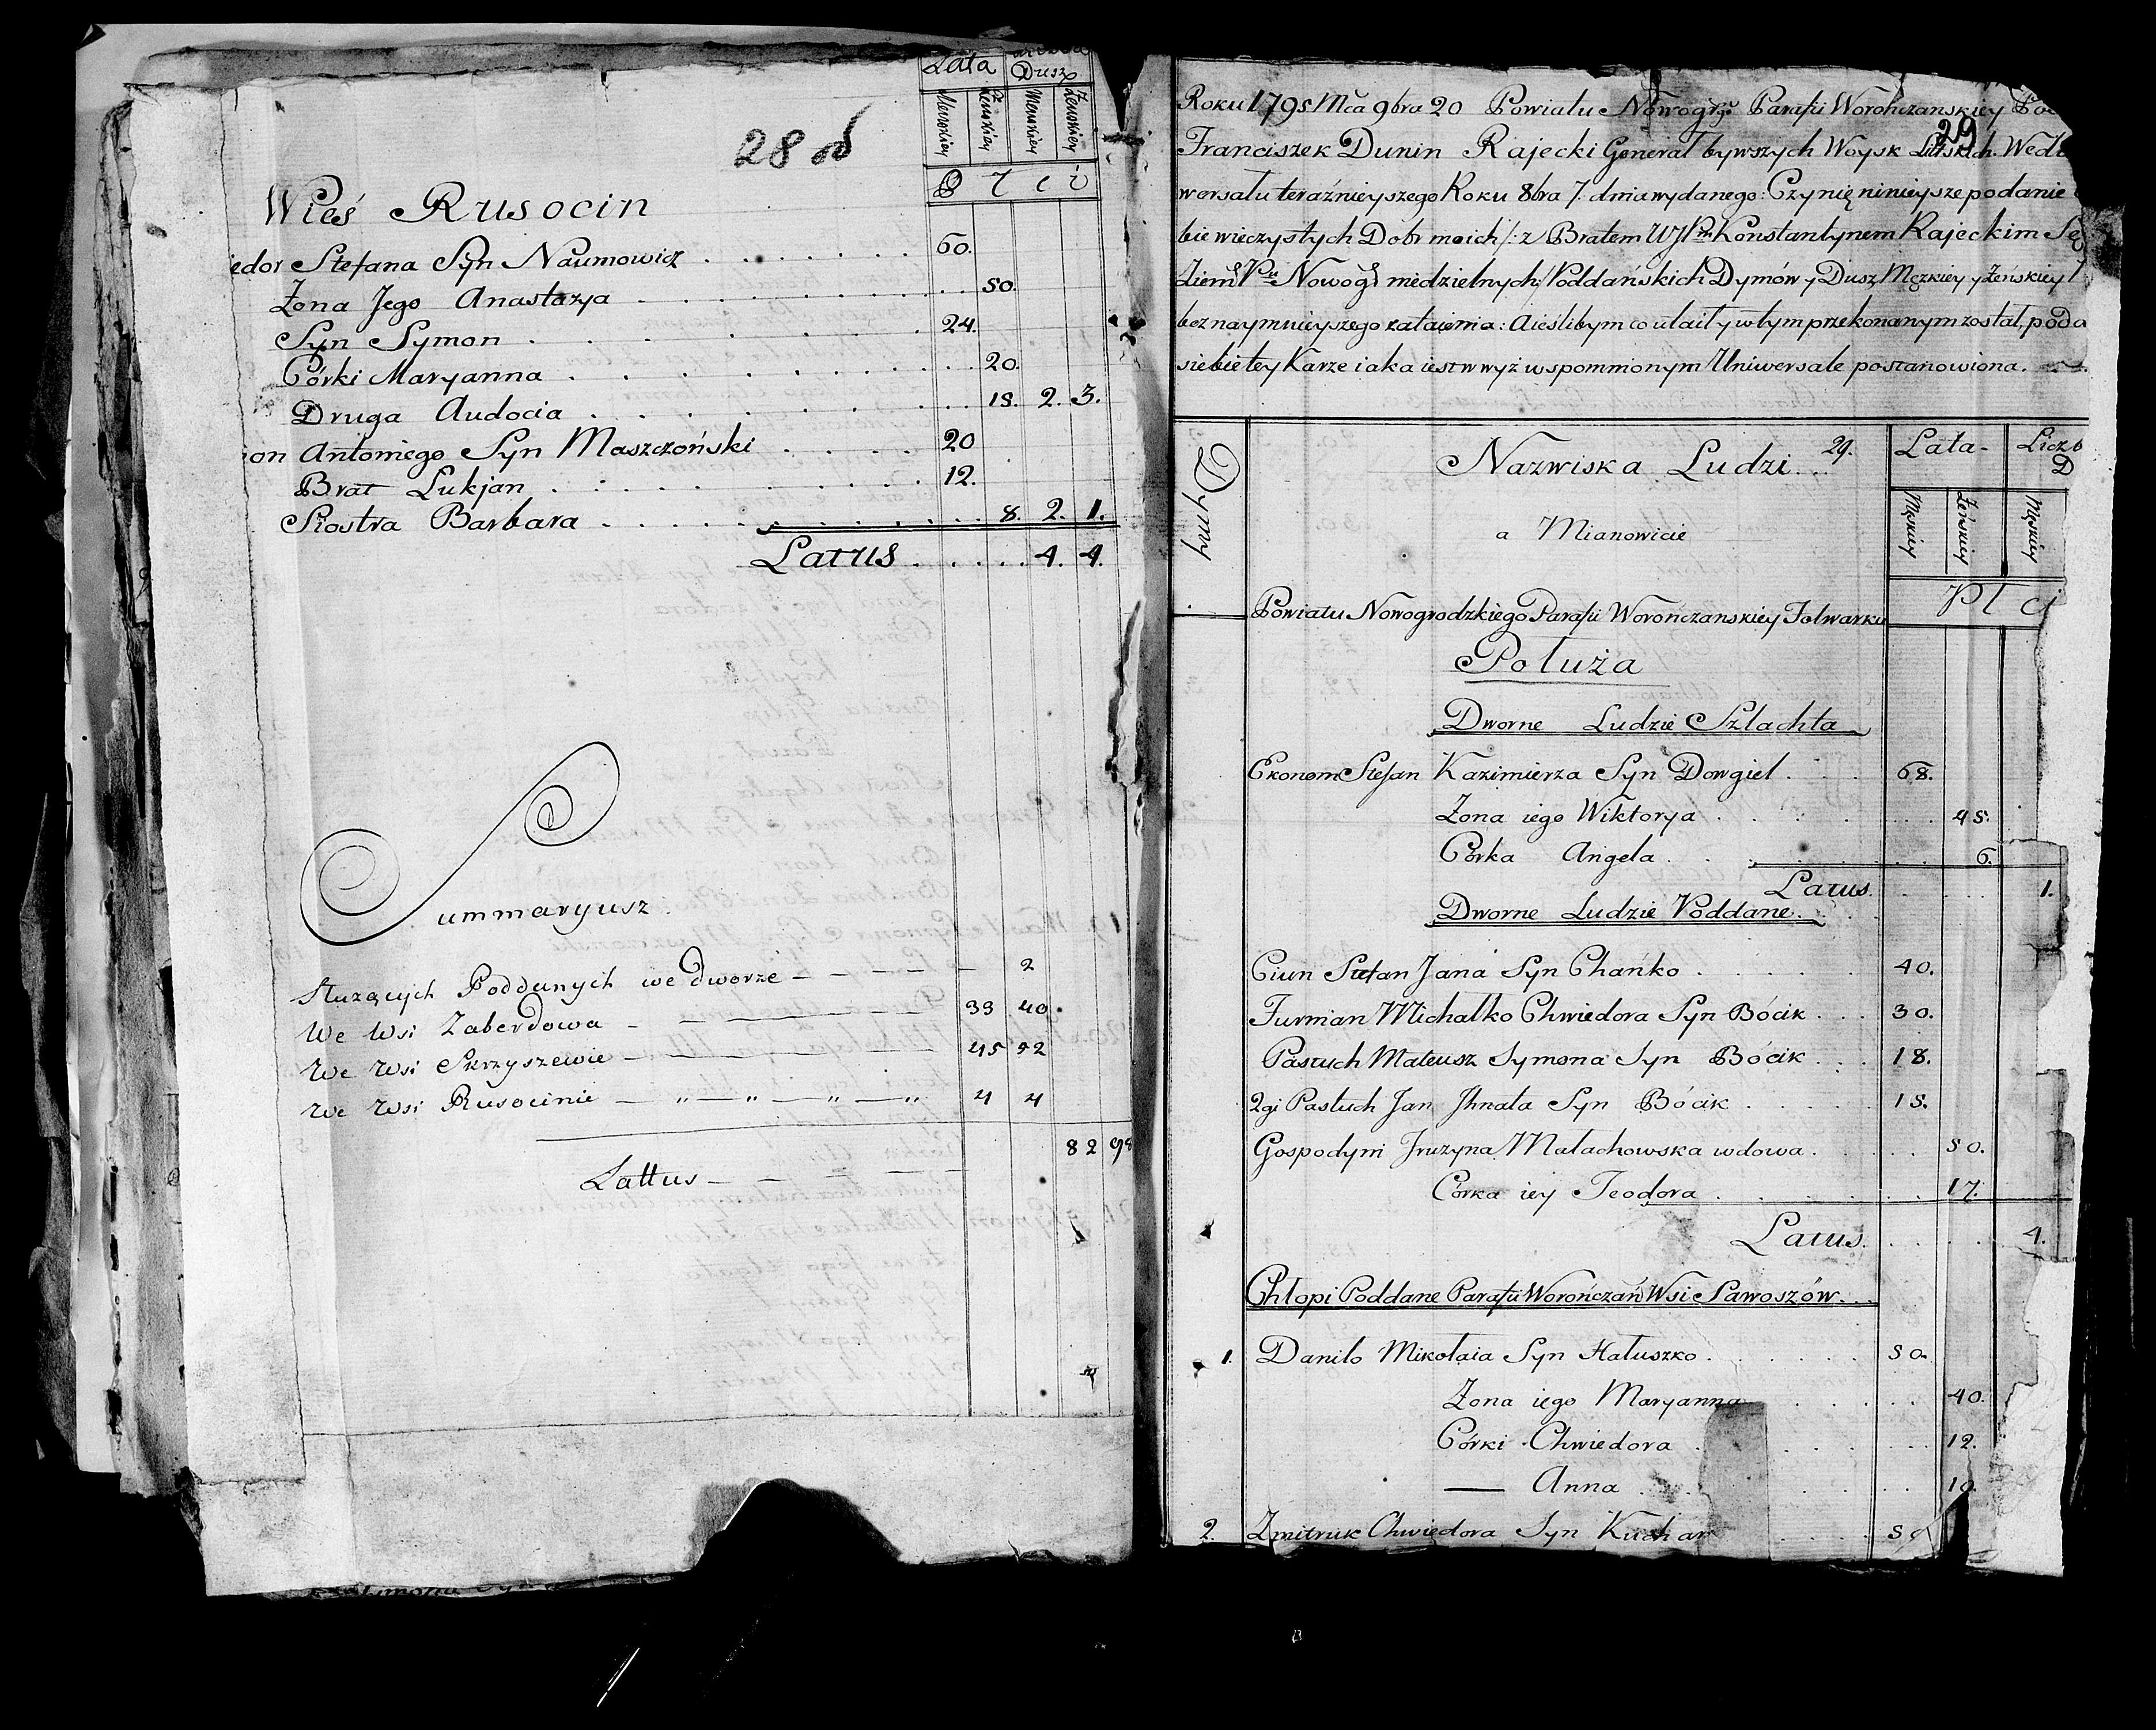 Lata Dusz
Męzkiey Żenskiey Męzkiey Żenskiey
28 об
P l c i
Wieś Rusocin
edor Stefana Syn Naumowicz . . . . . . . 60.
Zona Jego Anastazya . . . . . . . 50.
Syn Symon . . . . . . . 24.
Córki Maryanna . . . . . . . 20.
Druga Audocia . . . . . . . 15. 2. 3.
ion Antoniego Syn Maszczoński . . . . 20
Brat Lukjan . . . . . . . 12.
Siostra Barbara . . . . . . . 8. 2. 1.
Latus . . . . . 4. 4.
Summaryusz.
Służących Poddanych we dworze — — — — — 2
We Wsi Zaberdowa — — — — — 33 40.
We Wsi Skrzyszewie — — — — — 45 52
We Wsi Rusocinie — „ — „ — „ — „ 4 4
82 98
Lattus — — —
Roku 1795 Mca 9bra 20 Powiatu Nowogr: Parafii Worończanskiey
29
Franciszek Dunin Rajecki Generał bywszych Woysk Litskich. Wedł
wersału teraźnieyszego Roku 8bra 7. dnia wydanego: Czynię ninieysze podanie
bie wieczystych Dobr moich /: z Bratem WJPm Konstantynem Rajeckim Sę
Ziem Ptu Nowog niedzielnych:/ Poddańskich Dymów y Dusz Męzkiey y Żeńskiey
bez naymnieyszego zataienia: a ieślibym co utaił y w tym przekonanym został, podd
siebie tey Karze iaka iest w wyż wspomnionym Uniwersale postanowiona.
Dymy
Nazwiska Ludzi . . 29.
Lata
Liczb
D
a Mianowicie
Męskiey Żeńskiey Męskiey
Pl ci
Powiatu Nowogrodzkiego Parafii Worończanskiey Folwarku
Połuża
Dworne Ludzie Szlachta
Ekonom Stefan Kazimierza Syn Dowgieł . . . . 68.
Zona iego Wiktorya . . . . . . 45.
Córka Angela . . . . . . 6.
Latus . . . . 1.
Dworne Ludzie Poddane . . .
Ciun Stefan Jana Syn Chańko . . . . . 40.
Furman Michałko Chwiedora Syn Bócik . . . 30.
Pastuch Mateusz Symona Syn Bócik . . . 18.
2gi Pastuch Jan Jhnata Syn Bócik . . . . . 15.
Gospodyni Jruzyna Małachowska wdowa . . . . 50.
Córka iey Teodora . . . . . 17.
Latus . . . . . 4.
Chłopi Poddane Parafii Worończań Wsi Sawoszów . . .
1. Daniło Mikołaia Syn Hałuszko . . . . . . 50.
Zona iego Maryanna . . . . . 40.
Córki Chwiedora . . . . . . 12.
— Anna . . . . . . 10.
2. Zmitruk Chwiedora Syn Kuchar . . . .